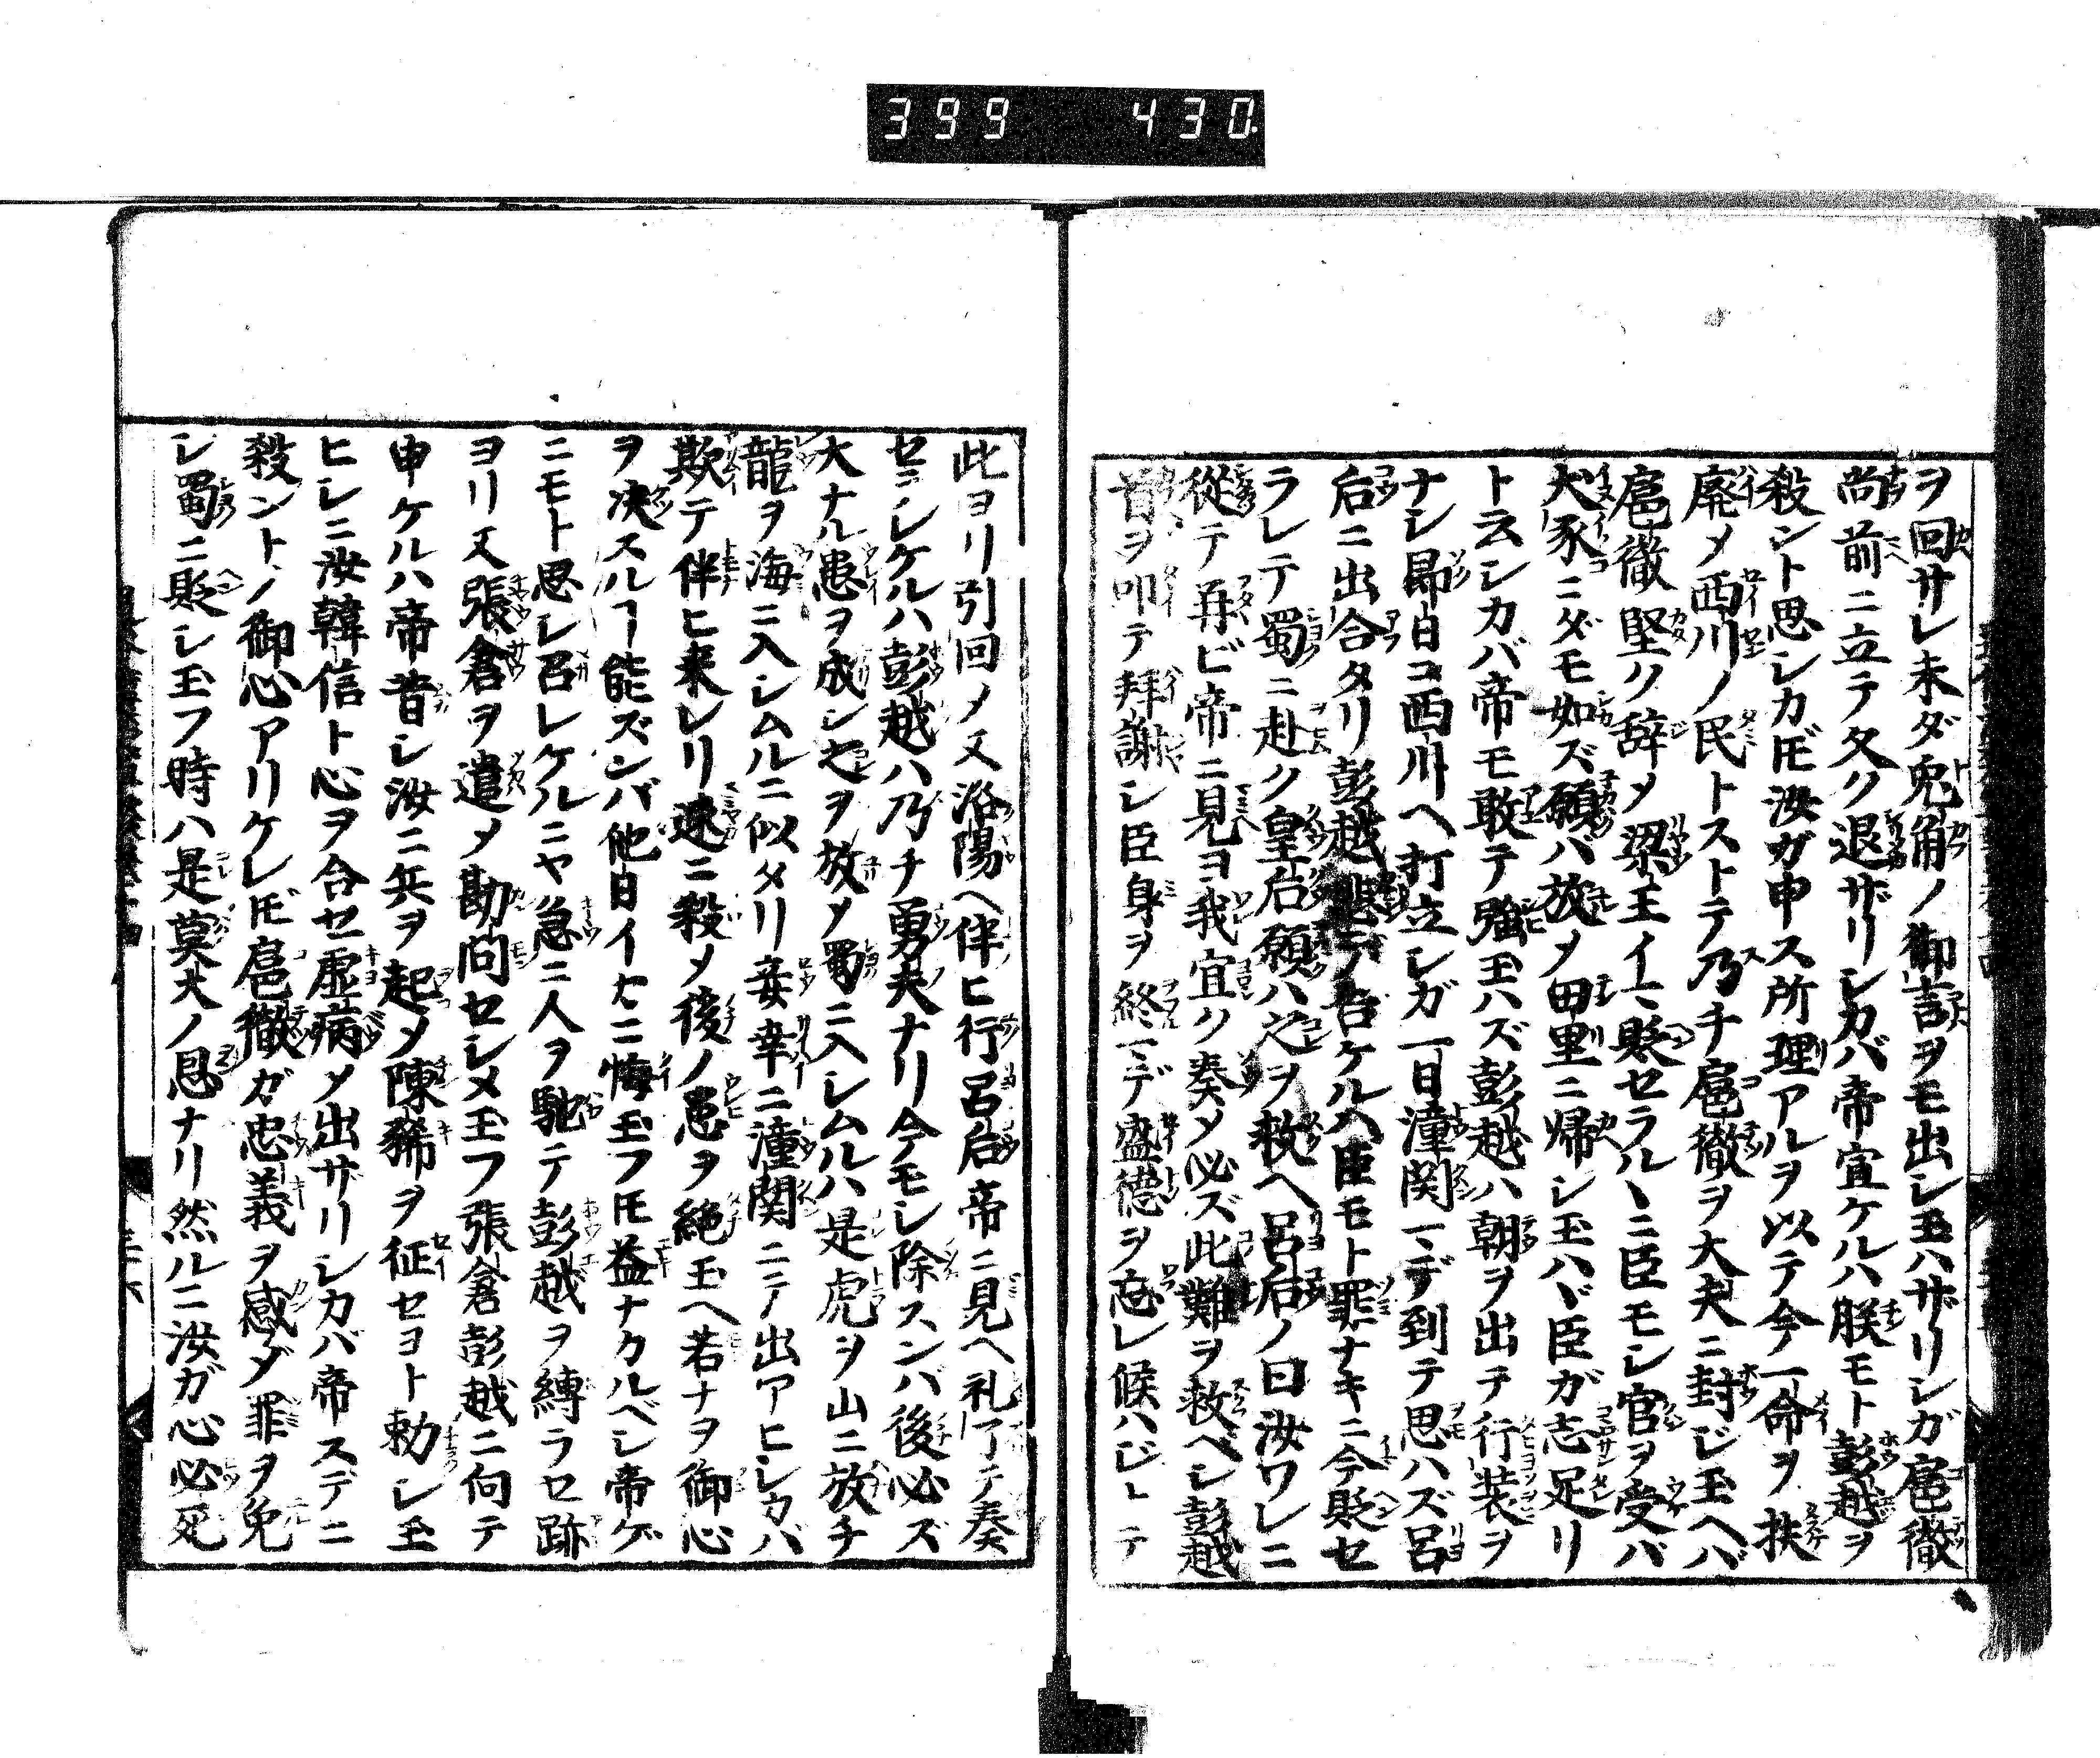 399 430.
ヲ回サレ未ダ兎角ノ御言ヲモ出シ玉ハザリシガ扈徹
尚前ニ立テ久ク退ザリシカバ帝宣ケルハ朕モト彭越ヲ
殺ント思シカ𪜈汝ガ申ス所理アルヲ以テ今一命ヲ扶
廃メ西川ノ民トストテ乃チ扈徹ヲ大夫ニ封じ玉ヘバ
扈徹堅ク辞メ梁王イマ貶セラルヽニ臣モシ官ヲ受バ
犬豕ニダモ如ズ願バ放メ田里ニ帰シ玉ハヾ臣ガ志足リ
ト云シカバ帝モ敢テ強玉ハズ彭越ハ朝ヲ出テ行装ヲ
ナシ昴日コ西川ヘ打立シガ一日潼関マデ到テ思ハズ呂
后ニ出合タリ彭越悲テ告ケルハ臣モト罪ナキニ今貶セ
ラレテ蜀ニ赴ク皇后願ハ之ヲ救ヘ呂后ノ曰汝ワレニ
從テ再ビ帝ニ見ヨ我宜ク奏メ必ズ此難ヲ救ベシ彭越
首ヲ叩テ拜謝シ臣身ヲ終マデ盛德ヲ忘レ候ハじトテ
此ヨリ引回メ又洛陽ヘ伴ヒ行呂后帝ニ見ヘ礼了テ奏
セラレケルハ彭越ハ乃チ勇夫ナリ今モシ除スンバ後必ズ
大ナル患ヲ成シ之ヲ放メ蜀ニ入シムルハ是虎ヲ山ニ放チ
龍ヲ海ニ入シムルニ似タリ妾幸ニ潼関ニテ出アヒシカバ
欺テ伴ヒ来レリ速ニ殺メ後ノ患ヲ絶玉ヘ若ナヲ御心
ヲ决スルヿ能ズンバ他日イカニ悔玉フ𪜈益ナカルベシ帝ゲ
ニモト思レ召レケルニヤ急ニ人ヲ馳テ彭越ヲ縛ラセ跡
ヨリ又張倉ヲ遣メ勘問セシメ玉フ張倉彭越ニ向テ
申ケルハ帝昔シ汝ニ兵ヲ起メ陳豨ヲ征セヨト勅シ玉
ヒシニ汝韓信ト心ヲ合セ虚病メ出サリシカバ帝スデニ
殺ントノ御心アリケレ𪜈扈徹ガ忠義ヲ感ダ罪ヲ免
シ蜀ニ貶シ玉フ時ハ是莫大ノ恩ナリ然ルニ汝ガ心必死